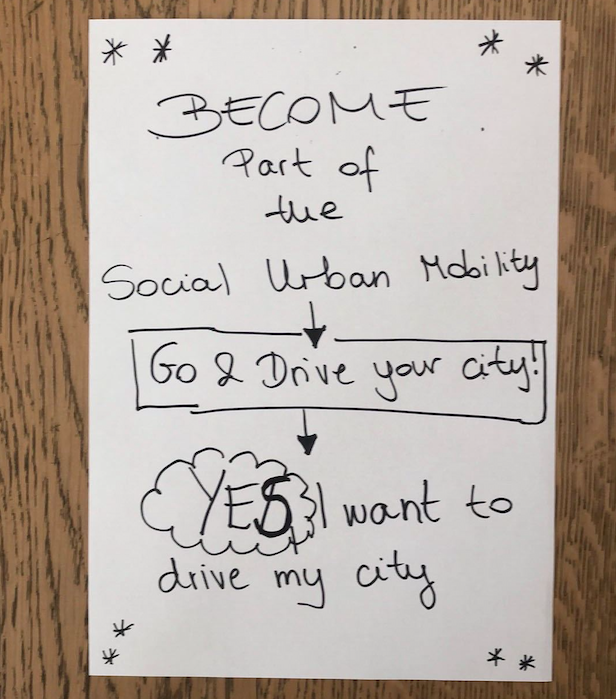 BECOME
Part of
the
Social Urban Mobility
Go & Drive your city!
YES I want to
drive my city